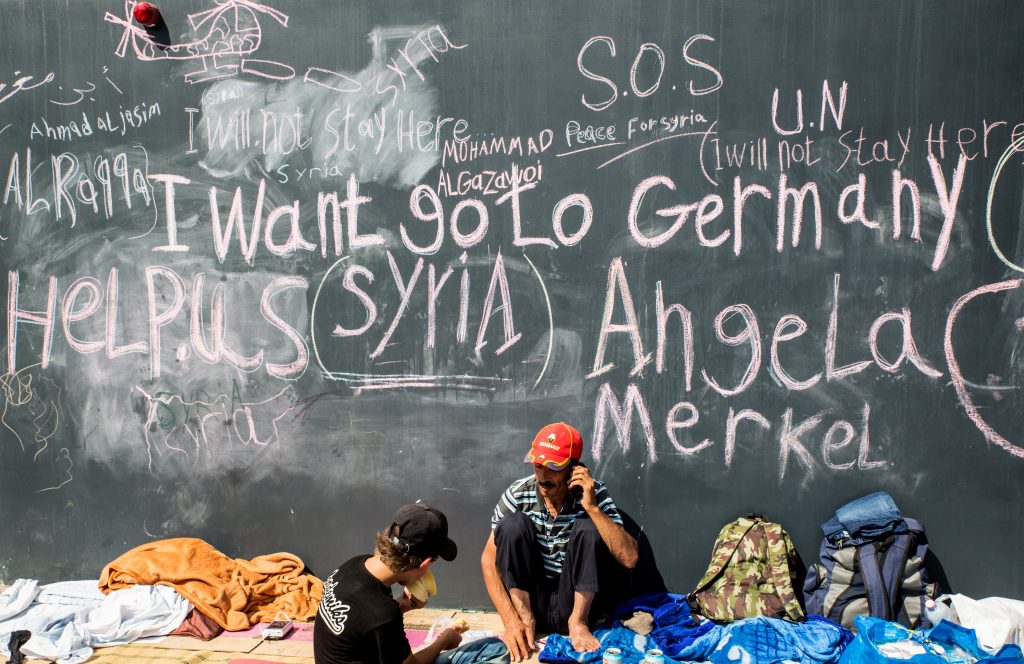 S.O.S
Syria
(Syria)
U.N
Ahmad aLjasim
I will not stay Here
MOHAMMAD
ALGazawoi
Peace For syria
(I will not stay Here
Syria
ALRaqqa)
I Want go to Germany
HeLP.us (SyriA) AngeLa
Merkel
SYRIA
Syria